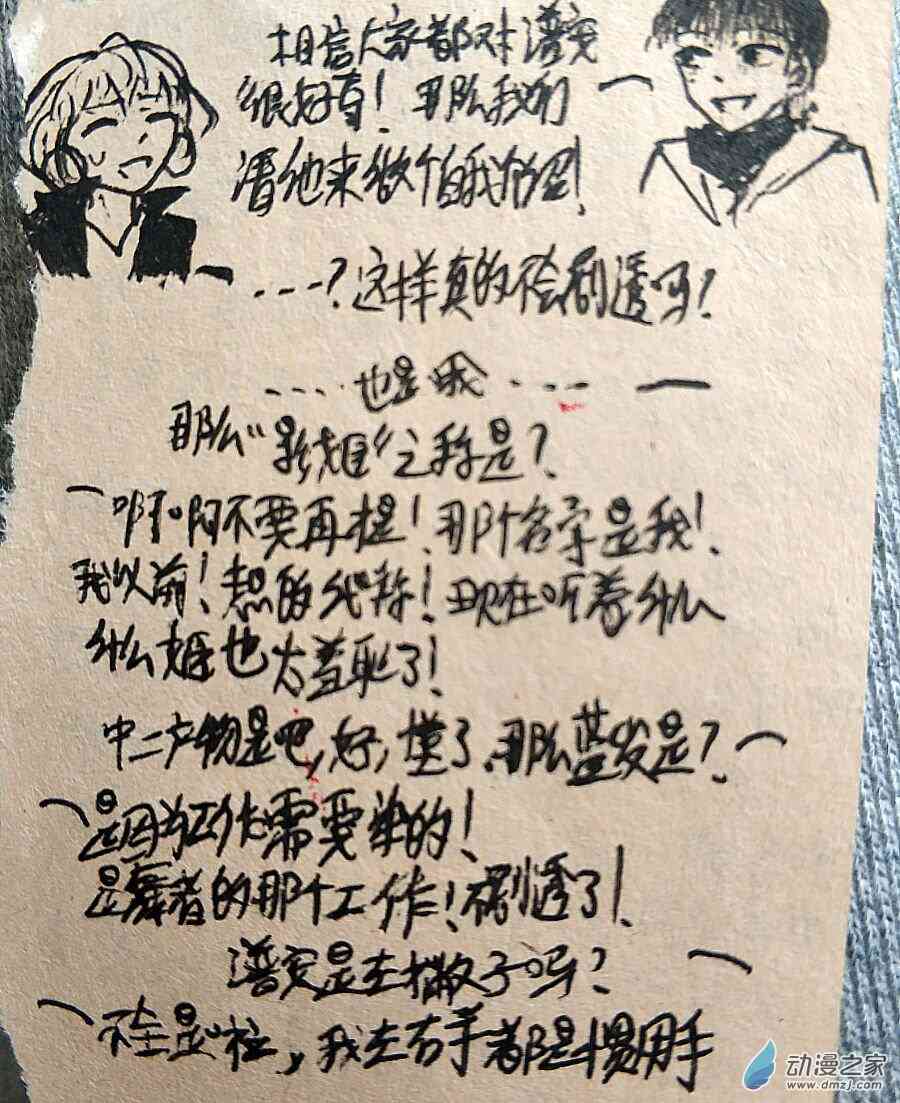 相信大家都对潜寞
很好奇！那么我们
请他来做个自我介绍！
……？这样真的不会剧透吗？
……也是哦……
那么“影姬”之称是？
啊啊不要再提！那个名字是我！
我以前！想的代称！现在听着什么
什么姬也太羞耻了！
中二产物是吧，好，懂了，那么蓝发是？
是因为工作需要染的！
是舞者的那个工作！不剧透了！
是左撇子吗？
不全是啦，我左右手都是惯用手
动漫之家
www.dmzj.com